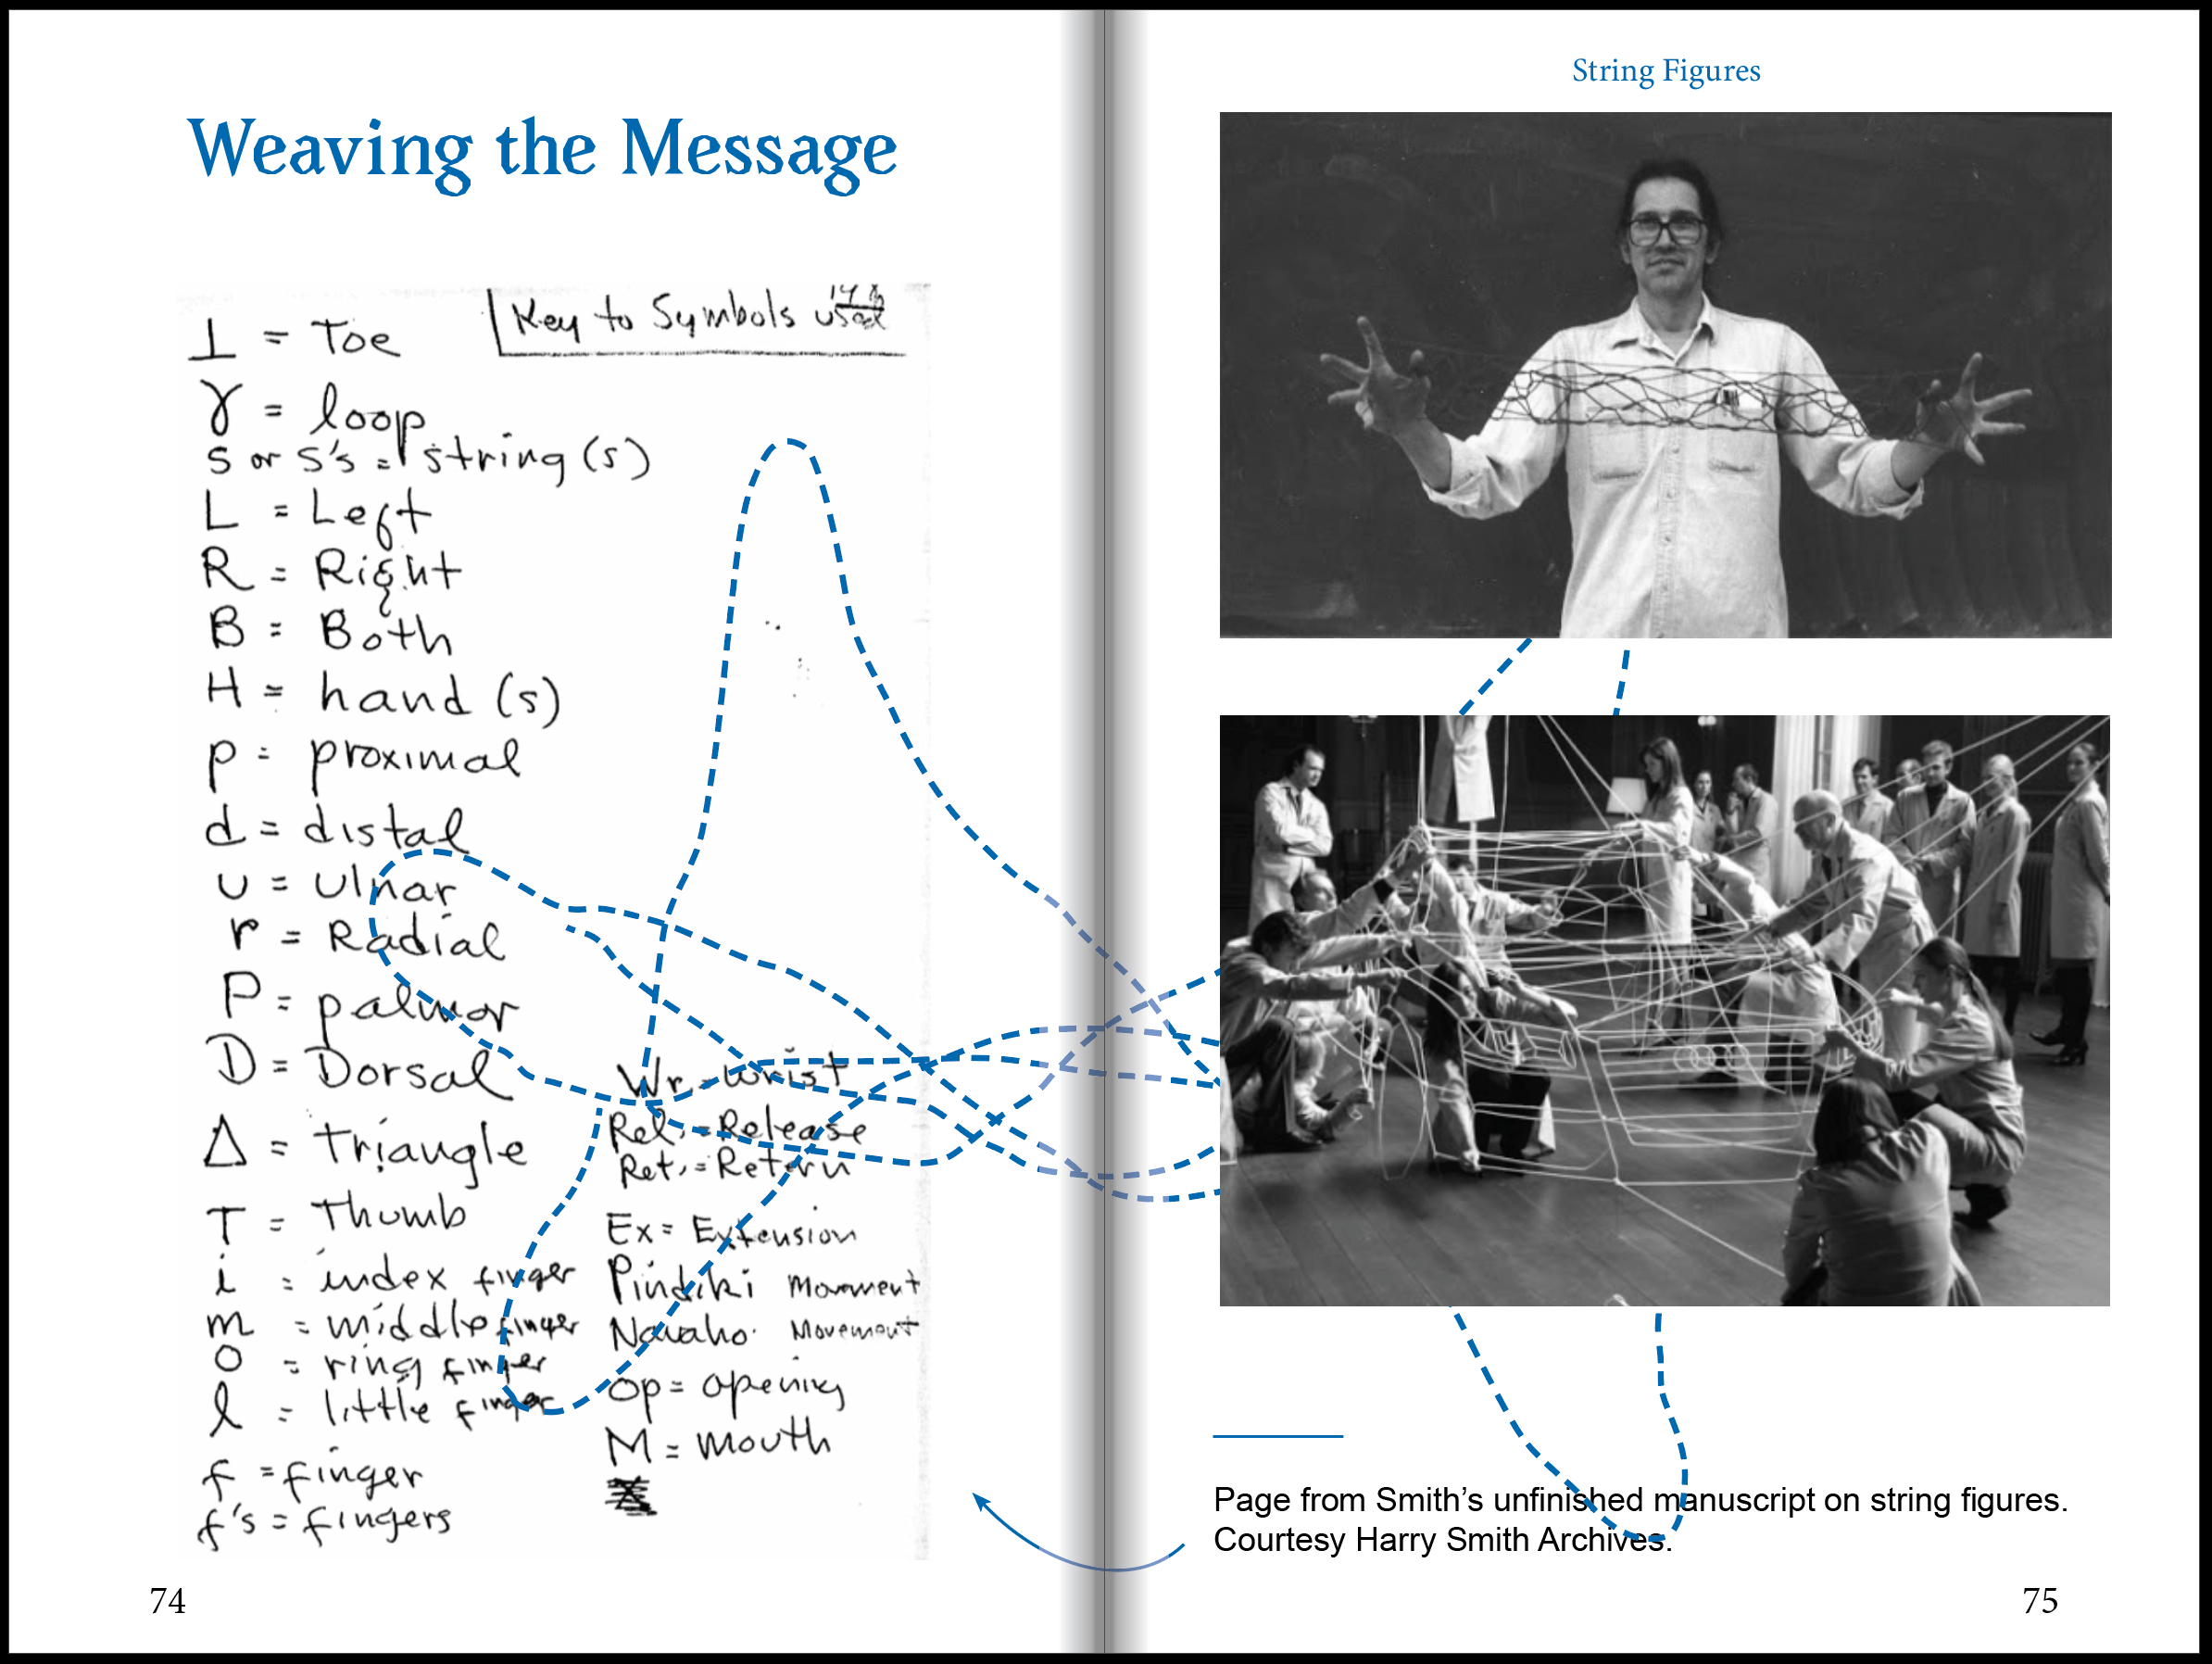 Weaving the Message
Key to Symbols used
⊥ = Toe
ɣ = loop
s or s's = string(s)
L = Left
R = Right
B = Both
H = hand(s)
p = proximal
d = distal
u = ulnar
r = Radial
P = palmar
D = Dorsal
Δ = Triangle
T = Thumb
i = index finger
m = middle finger
o = ring finger
l = little finger
f = finger
f's = fingers
Wr = wrist
Rel. = Release
Ret. = Return
Ex = Extension
Pindiki Movement
Navaho Movement
Op = opening
M = mouth
74
String Figures
Page from Smith's unfinished manuscript on string figures.
Courtesy Harry Smith Archives.
75